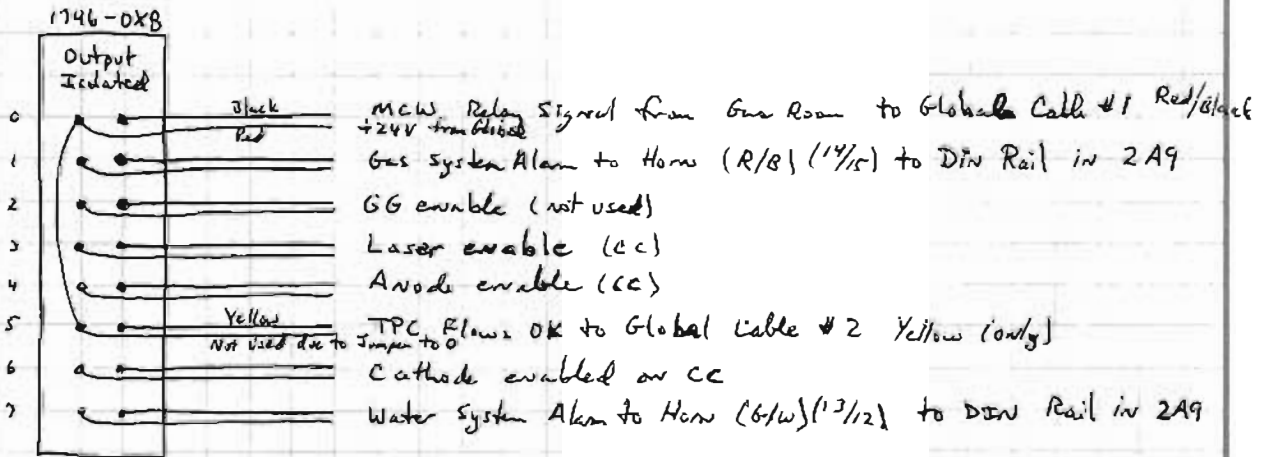 1746-OX8
Output
Isolated
0 Black MCW Relay Signal from Gas Room to Global Cable #1 Red/Black
Red +24V from Global
1 Gas System Alarm to Horn (R/B) (14/15) to DIN Rail in 2A9
2 GG enable (not used)
3 Laser enable (CC)
4 Anode enable (CC)
5 Yellow TPC Flows OK to Global Cable #2 Yellow (only)
Not used due to Jumper to 0
6 Cathode enabled on CC
7 Water System Alarm to Horn (G/W) (13/12) to DIN Rail in 2A9